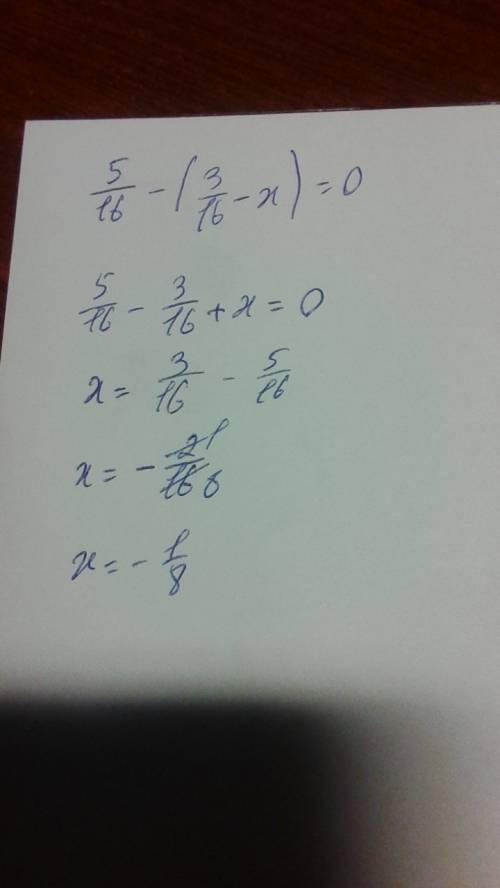 5/16 - (3/16 - x) = 0
5/16 - 3/16 + x = 0
x = 3/16 - 5/16
x = - 2 1/16 8
x = - 1/8